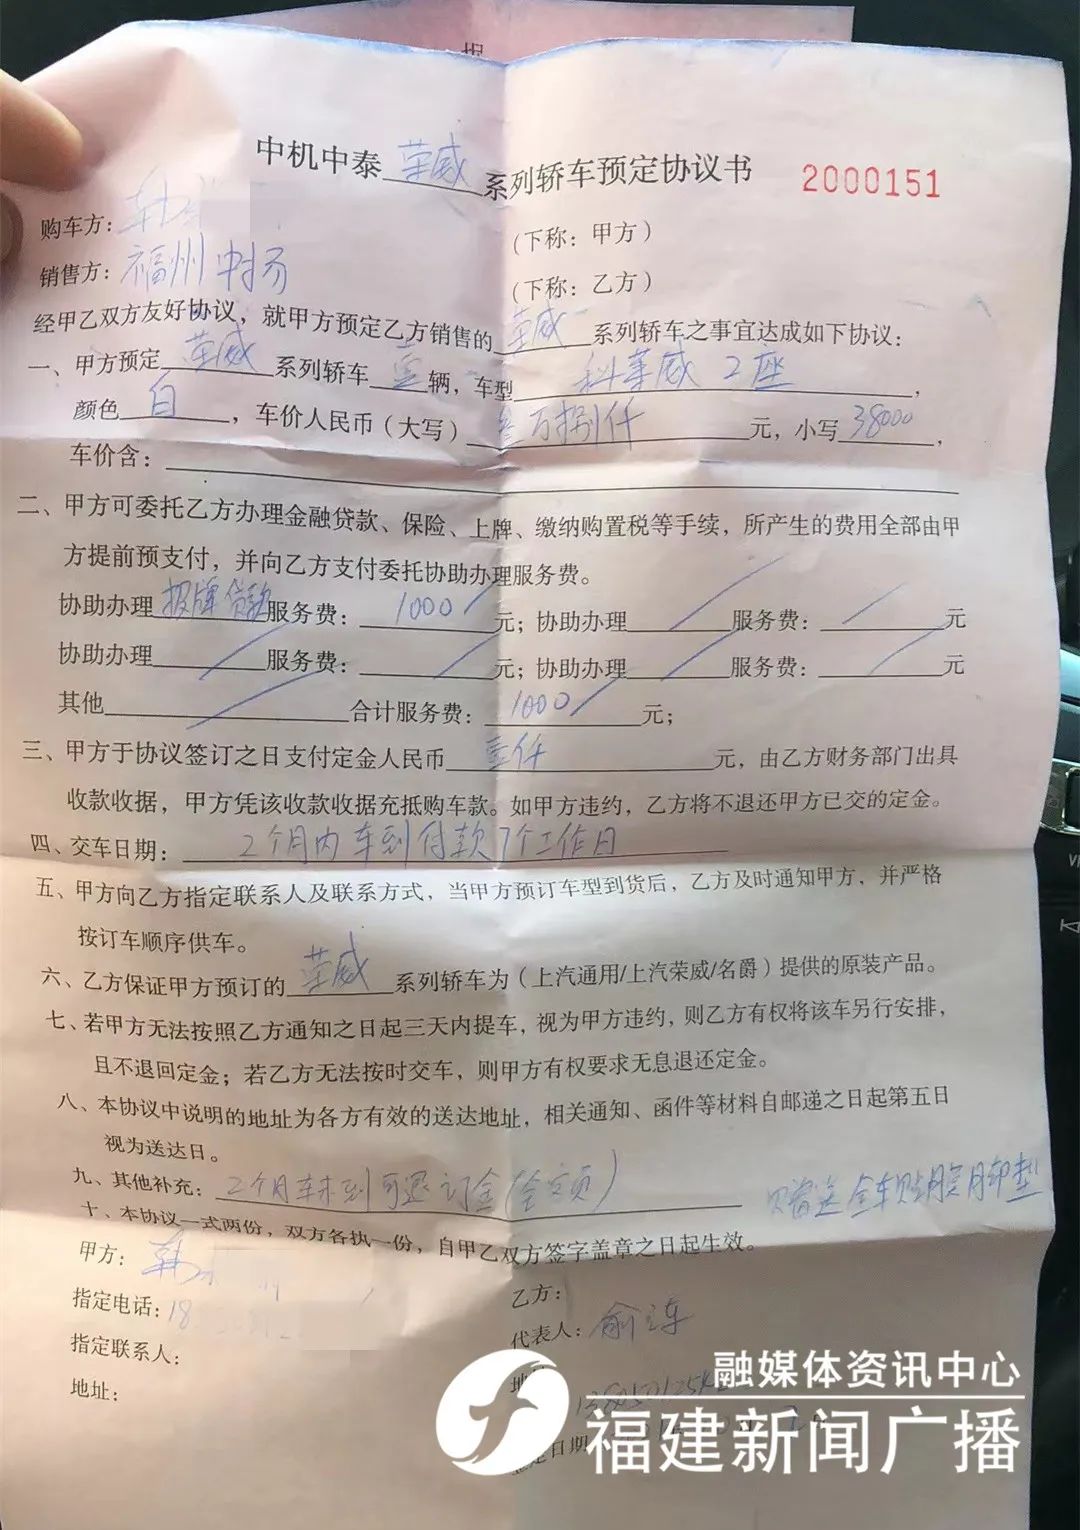 中机中泰 荣威 系列轿车预定协议书 2000151
购车方：韩 (下称：甲方)
销售方：福州中 (下称：乙方)
经甲乙双方友好协议，就甲方预定乙方销售的 荣威 系列轿车之事宜达成如下协议：
一、甲方预定 荣威 系列轿车 壹 辆，车型 科莱威 2座，
颜色 白，车价人民币（大写）叁万捌仟 元，小写 38000，
车价含：
二、甲方可委托乙方办理金融贷款、保险、上牌、缴纳购置税等手续，所产生的费用全部由甲
方提前预支付，并向乙方支付委托协助办理服务费。
协助办理 报牌 贷款 服务费：1000 元；协助办理 服务费： 元
协助办理 服务费： 元；协助办理 服务费： 元
其他 合计服务费：1000 元；
三、甲方于协议签订之日支付定金人民币 壹仟 元，由乙方财务部门出具
收款收据，甲方凭该收款收据充抵购车款。如甲方违约，乙方将不退还甲方已交的定金。
四、交车日期：2个月内 车到付款7个工作日
五、甲方向乙方指定联系人及联系方式，当甲方预订车型到货后，乙方及时通知甲方，并严格
按订车顺序供车。
六、乙方保证甲方预订的 荣威 系列轿车为（上汽通用/上汽荣威/名爵）提供的原装产品。
七、若甲方无法按照乙方通知之日起三天内提车，视为甲方违约，则乙方有权将该车另行安排，
且不退回定金；若乙方无法按时交车，则甲方有权要求无息退还定金。
八、本协议中说明的地址为各方有效的送达地址，相关通知、函件等材料自邮递之日起第五日
视为送达日。
九、其他补充：2个月车未到可退订金（全款） 赠送全车贴膜 脚垫
十、本协议一式两份，双方各执一份，自甲乙双方签字盖章之日起生效。
甲方：韩 乙方：
指定电话：18 代表人：俞
指定联系人：
地址：
融媒体资讯中心
福建新闻广播